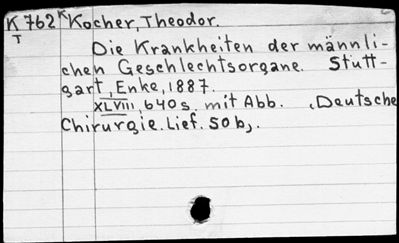 K 762 K Kocher, Theodor.
T
Die Krankheiten der männli-
chen Geschlechtsorgane. Stutt-
gart, Enke, 1887.
XLVIII, 640 s. mit Abb. (Deutsche
Chirurgie. Lief. 50b).